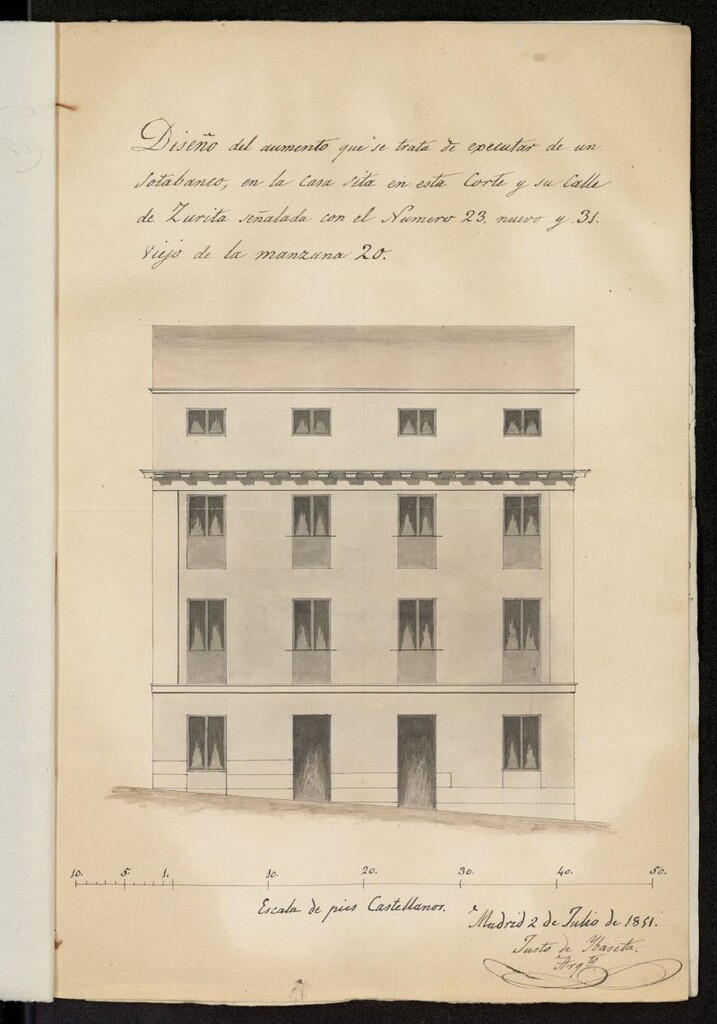 Diseño del aumento que se trata de executar de un
Sotabanco, en la casa sita en esta Corte y su Calle
de Zurita señalada con el Numero 23, nuevo y 31.
Viejo de la manzana 20.
10. 5. 1. 10. 20. 30. 40. 50.
Escala de pies Castellanos.
Madrid 2 de Julio de 1851.
Justo de
Arqto